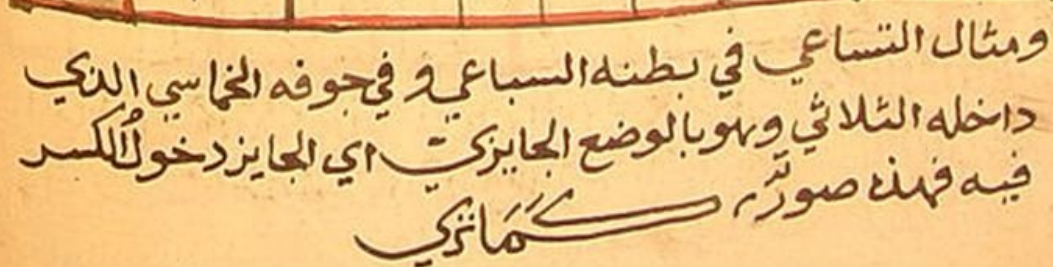 ومثال التساعي في بطنه السباعي وفي جوفه الخماسي الذي
داخله الثلاثي وهو بالوضع الجايزي اي الجايز دخول الكسر
فيه فهذه صورته كما ترى